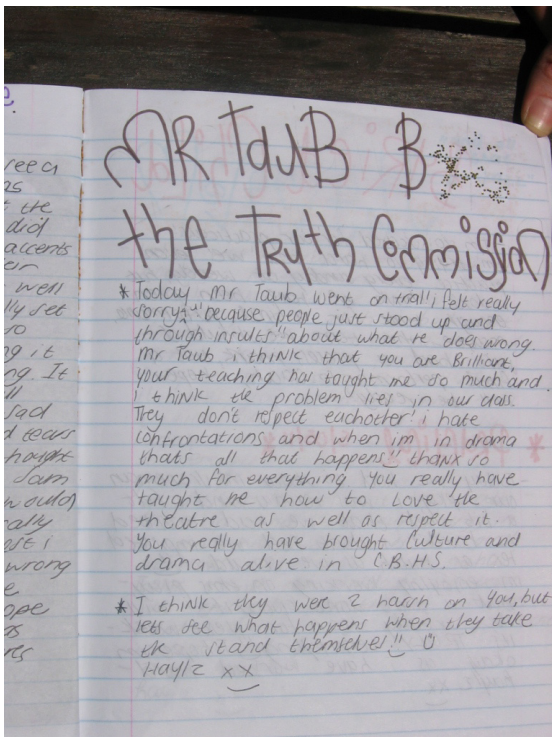 e.
reea
as
t the
did
accents
eir
well
lly set
so
g it
ng. It
ll
sad
d tears
hought
Sam
would
cally
ost i
wrong
e
ope
rs
res
MR TauB B
the TRyth Commission
* Today Mr Taub went on trial i felt really
sorry because people just stood up and
through insults about what he does wrong.
Mr Taub i think that you are Brilliant,
your teaching has taught me so much and
i think the problem lies in our class.
They don't respect eachother i hate
confrontations and when im in drama
thats all that happens!! thanx so
much for everything you really have
taught me how to love the
theatre as well as respect it.
You really have brought Culture and
drama alive in C.B.H.S.
* I think they were 2 harsh on you, but
lets see what happens when they take
the stand themselves!!
Haylz xx